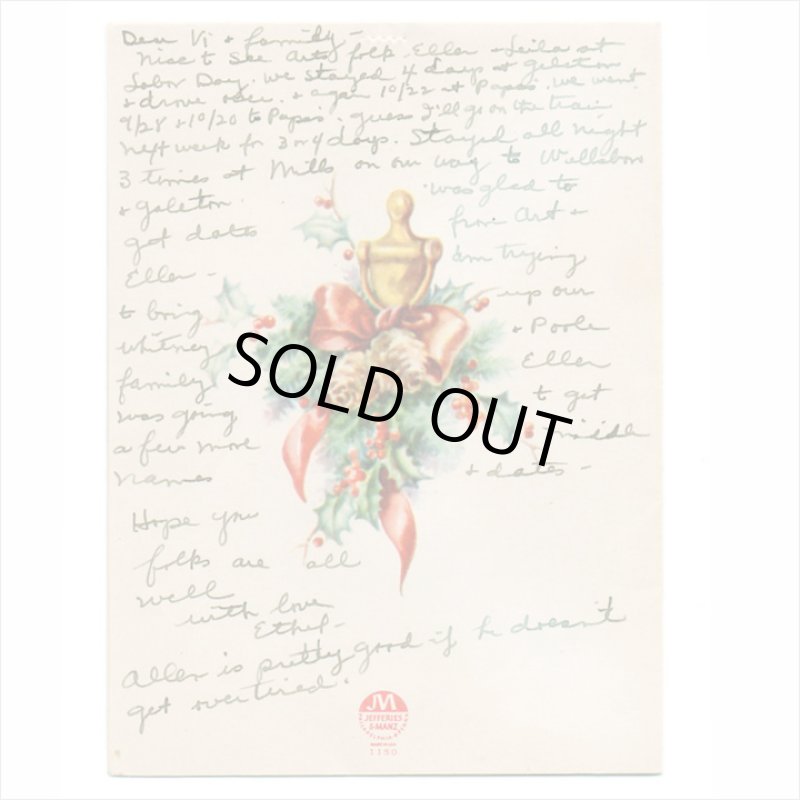 Dear Vi & family -
Nice to see Arts folk Ellen & Leila at
Labor Day. We stayed 4 days at Galeton
& drove over. & again 10/22 at Papas'. We went
9/28 & 10/20 to Papas'. guess I'll go on the train
next week for 3 or 4 days. Stayed all night
3 times at Mills on our way to Wellsboro
& Galeton. was glad to
got dates from Art &
Ellen - am trying
to bring up our
Whitney & Poole
family Ellen
was going to get
a few more middle
names & dates -
Hope you
folks are all
well
with love
Ethel -
Allen is pretty good if he doesn't
get overtired.
SOLD OUT
JM
JEFFERIES
& MANZ
PHILADELPHIA
MADE IN USA
1150